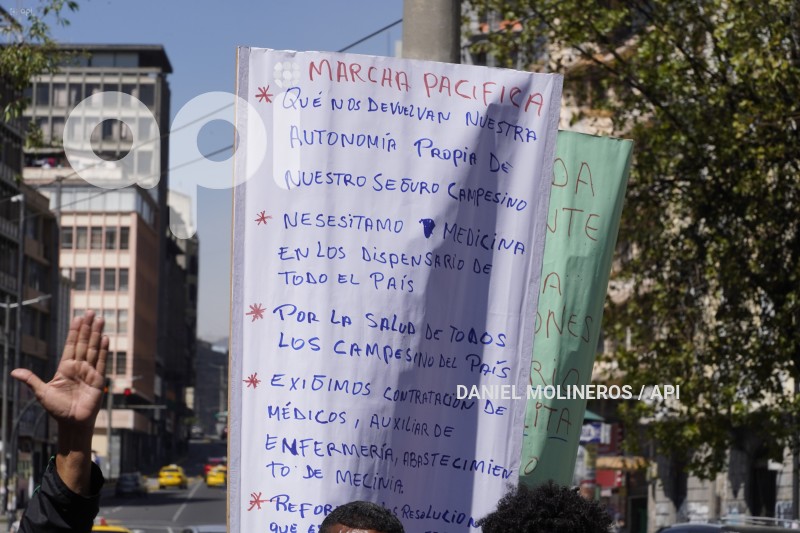 MARCHA PACIFICA
* QUÉ NOS DEVUELVAN NUESTRA
AUTONOMÍA PROPIA DE
NUESTRO SEGURO CAMPESINO
* NESESITAMO MEDICINA
EN LOS DISPENSARIO DE
TODO EL PAÍS
* POR LA SALUD DE TODOS
LOS CAMPESINO DEL PAÍS
* EXIGIMOS CONTRATACIÓN DE
MÉDICOS, AUXILIAR DE
ENFERMERÍA, ABASTECIMIEN
TO DE MECINIA.
* REFOR
RESOLUCION
QUE
DA
NTE
A
ONES
api
DANIEL MOLINEROS / API